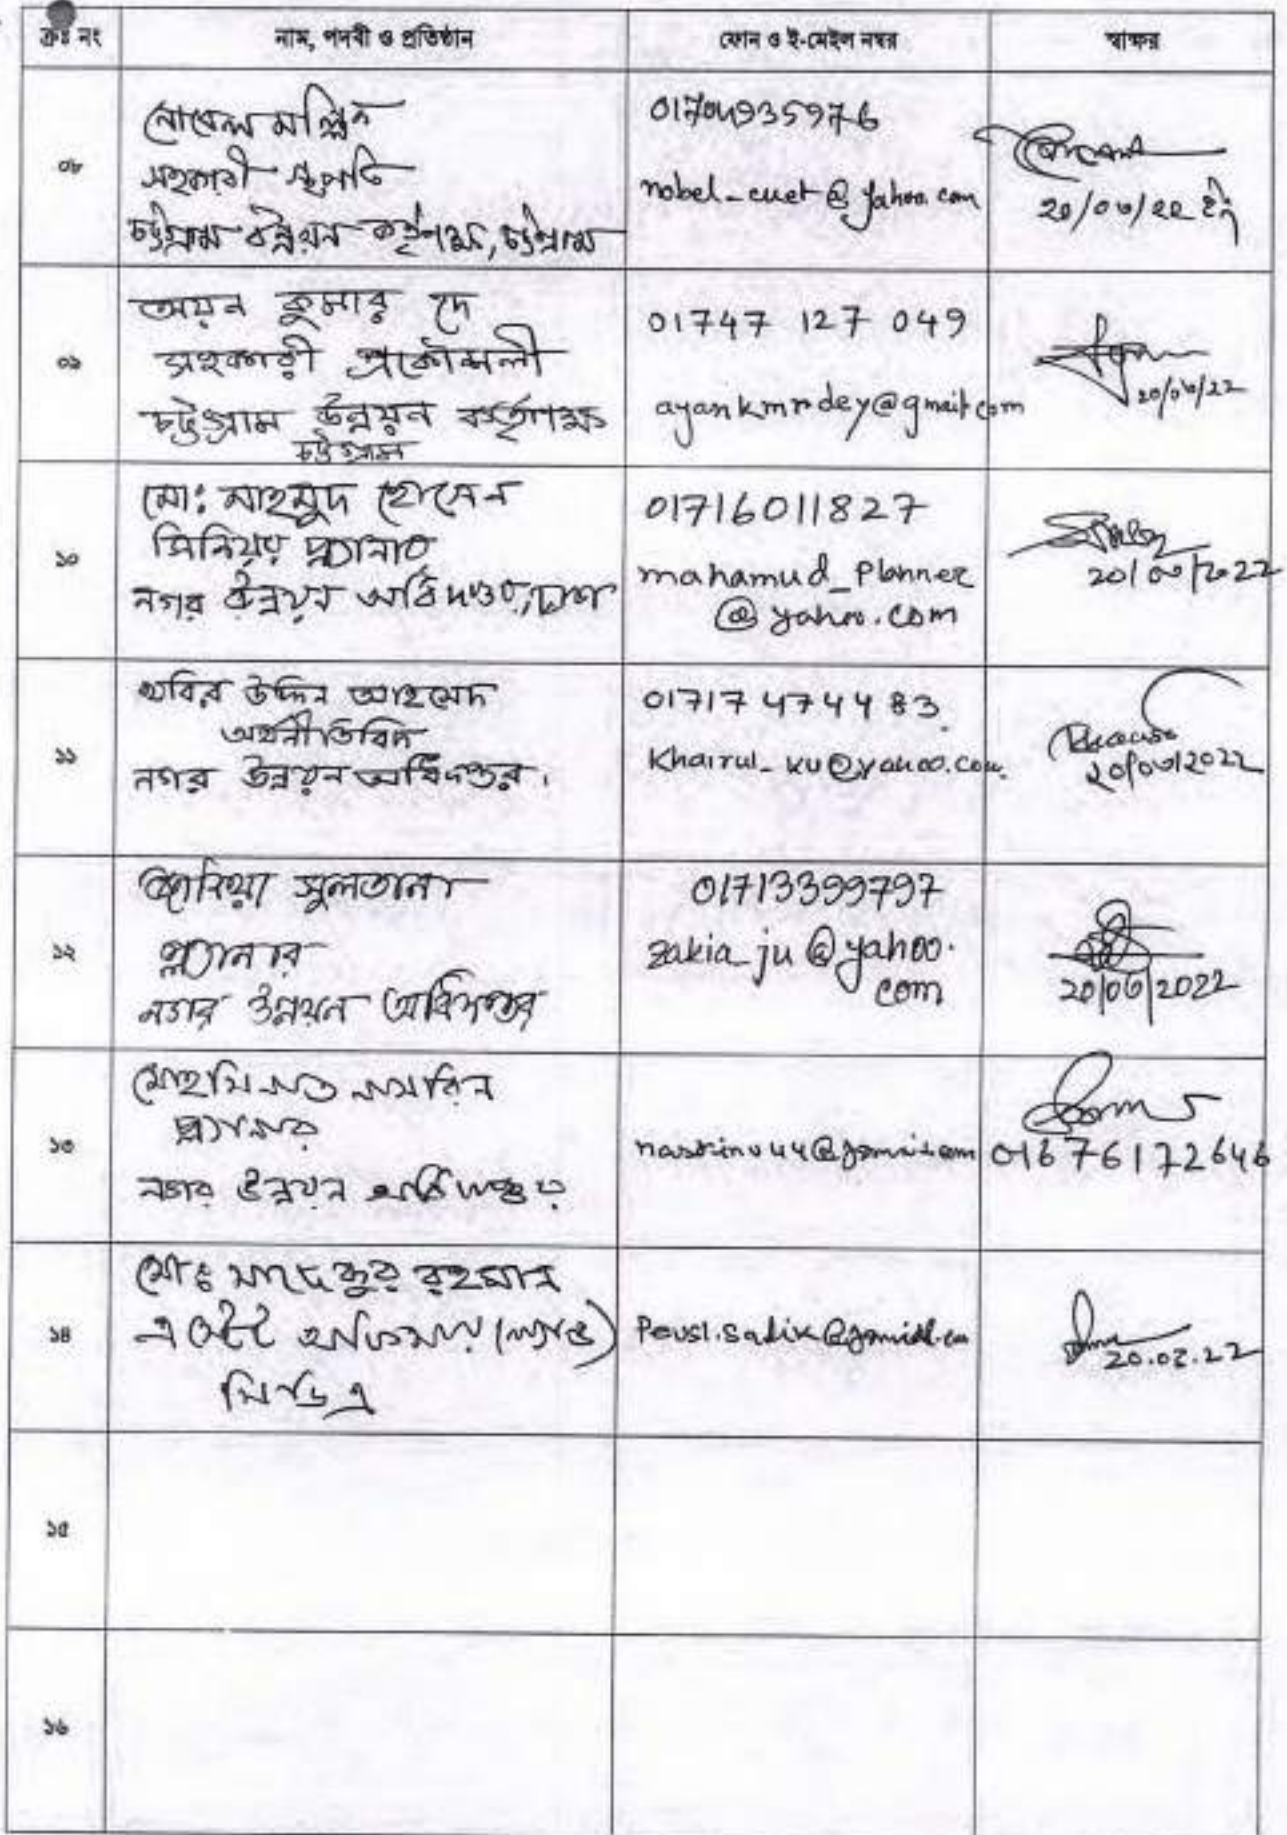 ক্রঃ নং নাম, পদবী ও প্রতিষ্ঠান ফোন ও ই-মেইল নম্বর স্বাক্ষর
০৮
নোবেল মল্লিক
সহকারী স্থপতি
চট্টগ্রাম উন্নয়ন কর্তৃপক্ষ, চট্টগ্রাম
01704935976
nobel_cuet@yahoo.com
০৯
অয়ন কুমার দে
সহকারী প্রকৌশলী
চট্টগ্রাম উন্নয়ন কর্তৃপক্ষ
চট্টগ্রাম
01747 127 049
ayankmrdey@gmail.com
20/06/22
১০
মো: মাহমুদ হোসেন
সিনিয়র প্ল্যানার
নগর উন্নয়ন অধিদপ্তর, ঢাকা
01716011827
mahamud_Planner
@yahoo.com
20/06/2022
১১
উদ্দিন আহমেদ
অর্থনীতিবিদ
নগর উন্নয়ন অধিদপ্তর।
01717474483
Khairul_ku@yahoo.com
20/06/2022
১২
জাকিয়া সুলতানা
প্ল্যানার
নগর উন্নয়ন অধিদপ্তর
01713399797
zakia_ju@yahoo.
com
20/06/2022
১৩
প্ল্যানার
নগর উন্নয়ন অধিদপ্তর
01676172646
১৪
মোঃ সাদেকুর রহমান
এস্টেট অফিসার (ল্যান্ড)
সিডিএ
১৫
১৬